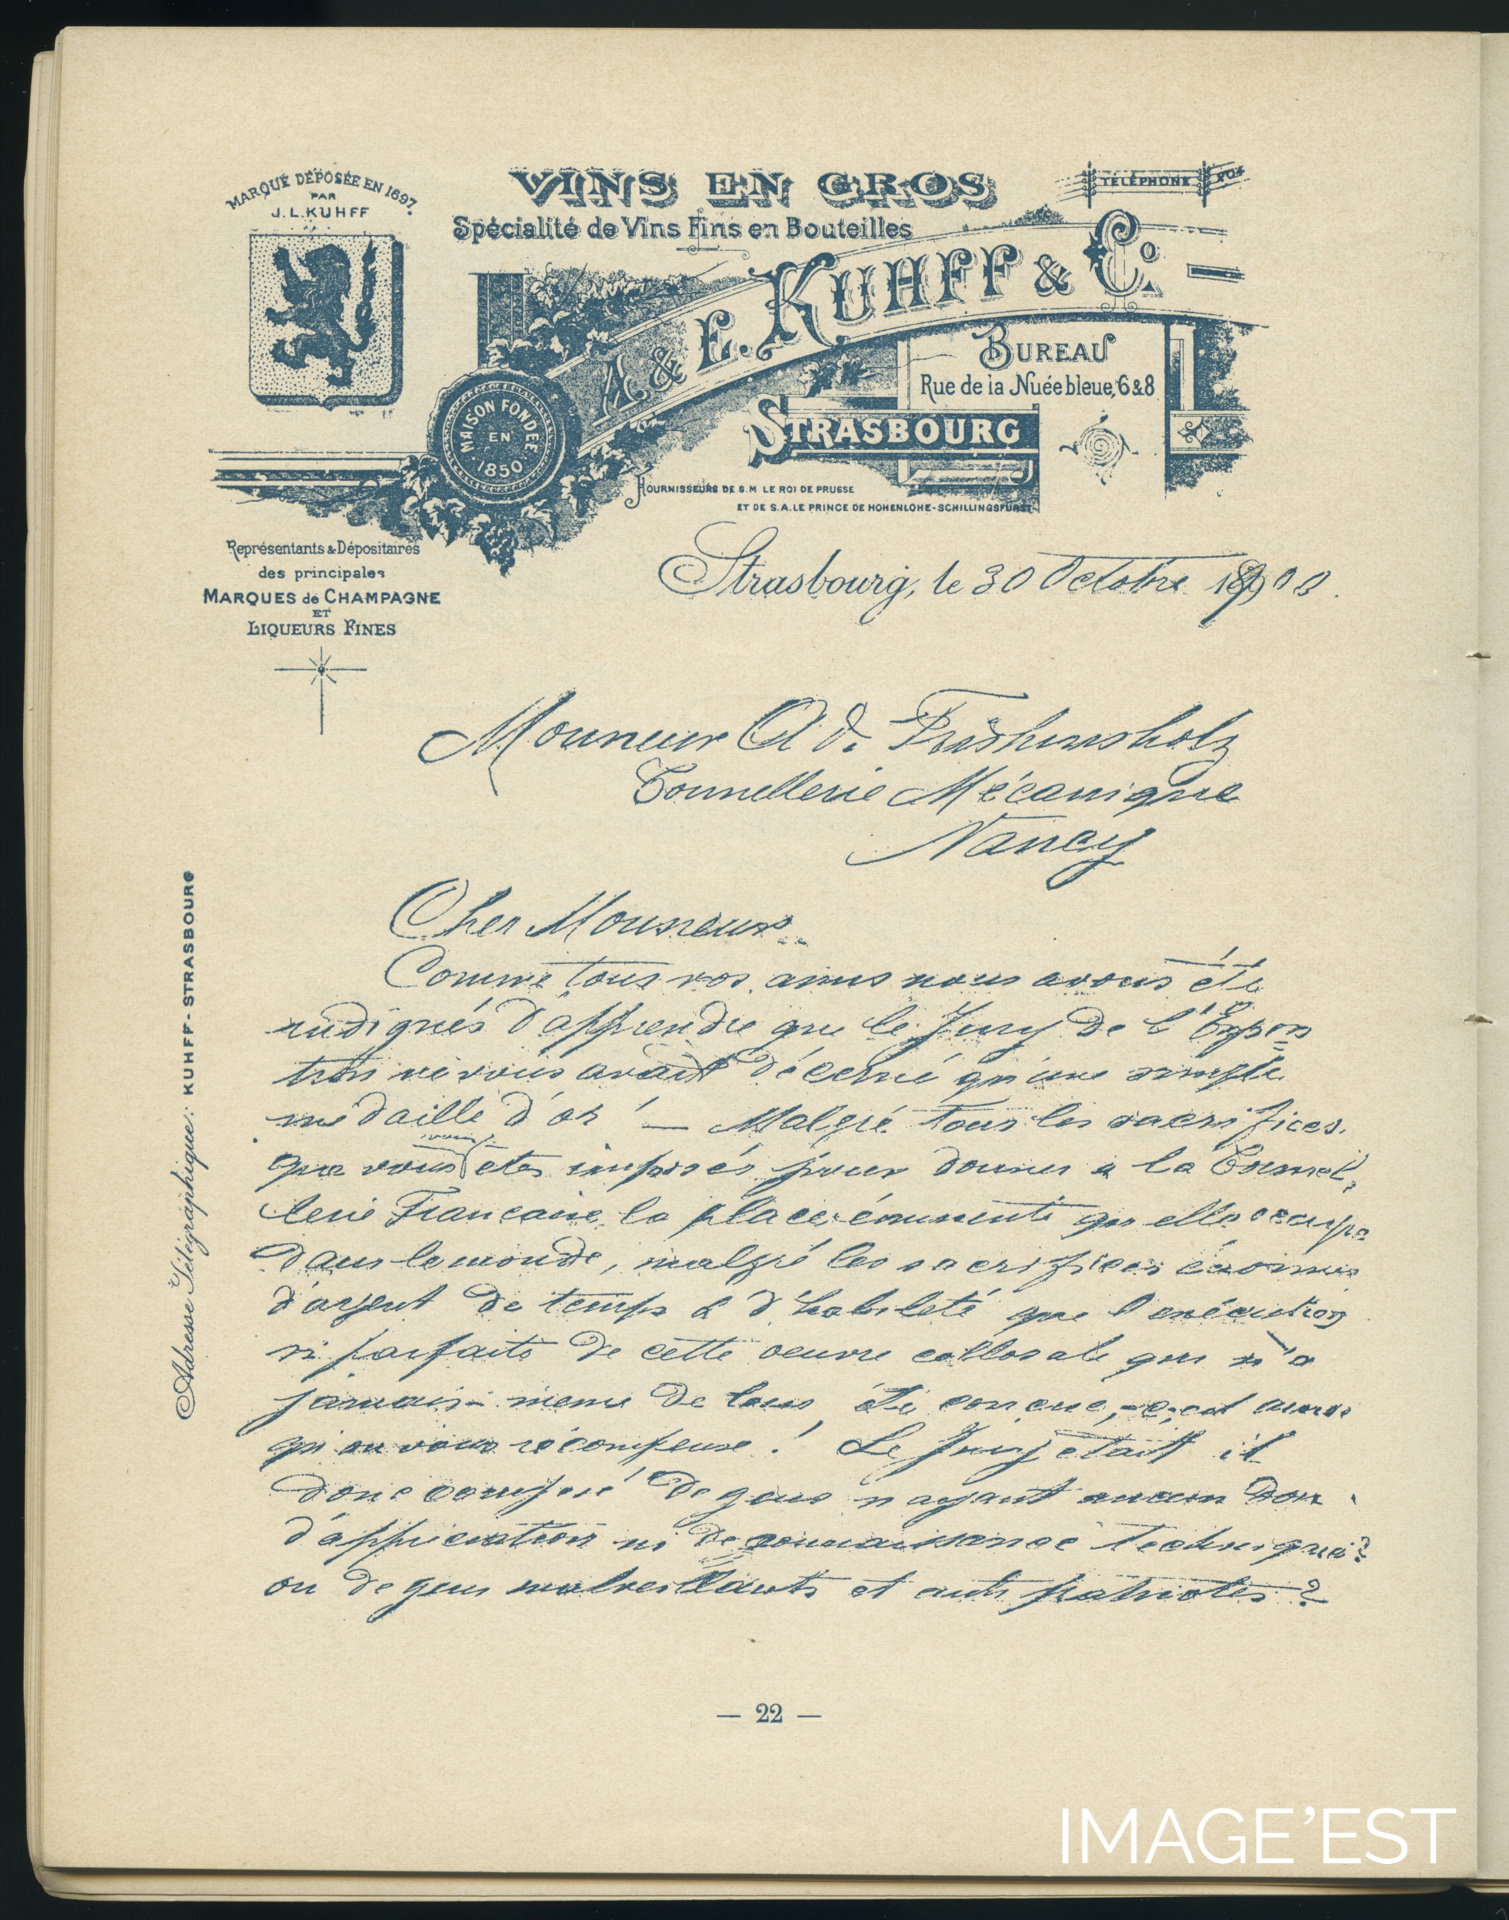 MARQUE DÉPOSÉE EN 1697
PAR
J. L. KUHFF
VINS EN GROS
TÉLÉPHONE 204
Spécialité de Vins Fins en Bouteilles
A & L. KUHFF & Cº
BUREAU
Rue de la Nuée bleue, 6 & 8
MAISON FONDÉE
EN
1850
STRASBOURG
FOURNISSEURS DE S.M. LE ROI DE PRUSSE
ET DE S.A. LE PRINCE DE HOHENLOHE-SCHILLINGSFÜRST
Représentants & Dépositaires
des principales
MARQUES de CHAMPAGNE
ET
LIQUEURS FINES
Strasbourg, le 30 Octobre 1900.
Monsieur Ad. Früshinsholz
Tonnellerie Mécanique
Nancy
Adresse Télégraphique: KUHFF-STRASBOURG
Cher Monsieur
Comme tous vos amis nous avons été
indignés d'apprendre que le Jury de l'Exposi=
tion ne vous avait décerné qu'une simple
médaille d'or! — Malgré tous les sacrifices
que vous vous êtes imposés pour donner à la Tonnel=
lerie Française la place éminente qu'elle occupe
dans le monde, malgré les sacrifices énormes
d'argent de temps & d'habileté que l'exécution
si parfaite de cette oeuvre collosale qui n'a
jamais même de loin été conçue, c'est ainsi
qu'on vous récompense! Le Jury était il
donc composé de gens n'ayant aucun don
d'appréciation ni de connaissance technique?
ou de gens malveillants et anti patriotes?
— 22 —
IMAGE'EST